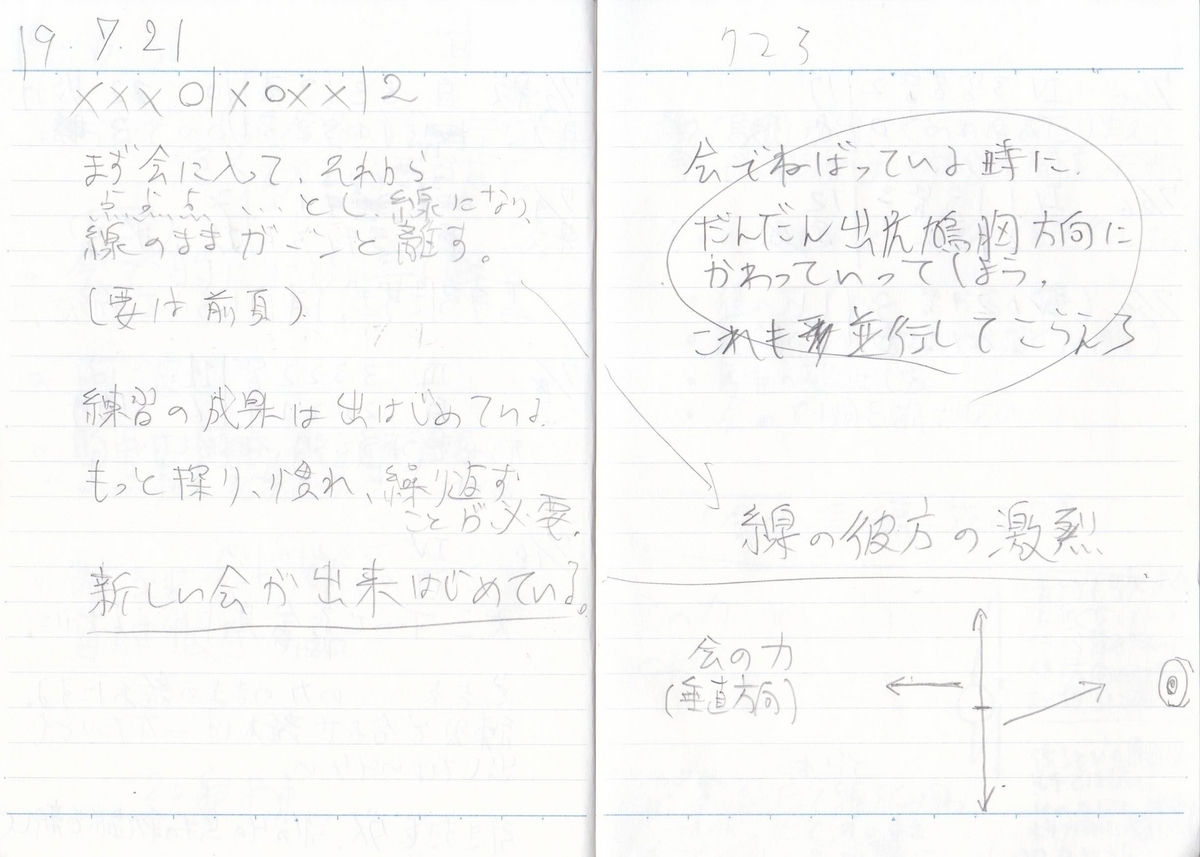 19.7.21
×××○|×○××|2
まず会に入って、それから
点点点…とし、線になり、
線のままガーンと離す。
(要は前頁)
練習の成果は出はじめている。
もっと探り、慣れ、繰り返す
ことが必要。
新しい会が出来はじめている。
723
会でねばっている時に、
だんだん出尻鳩胸方向に
かわっていってしまう。
これも並行してこらえる
線の彼方の激烈
会の力
(垂直方向)